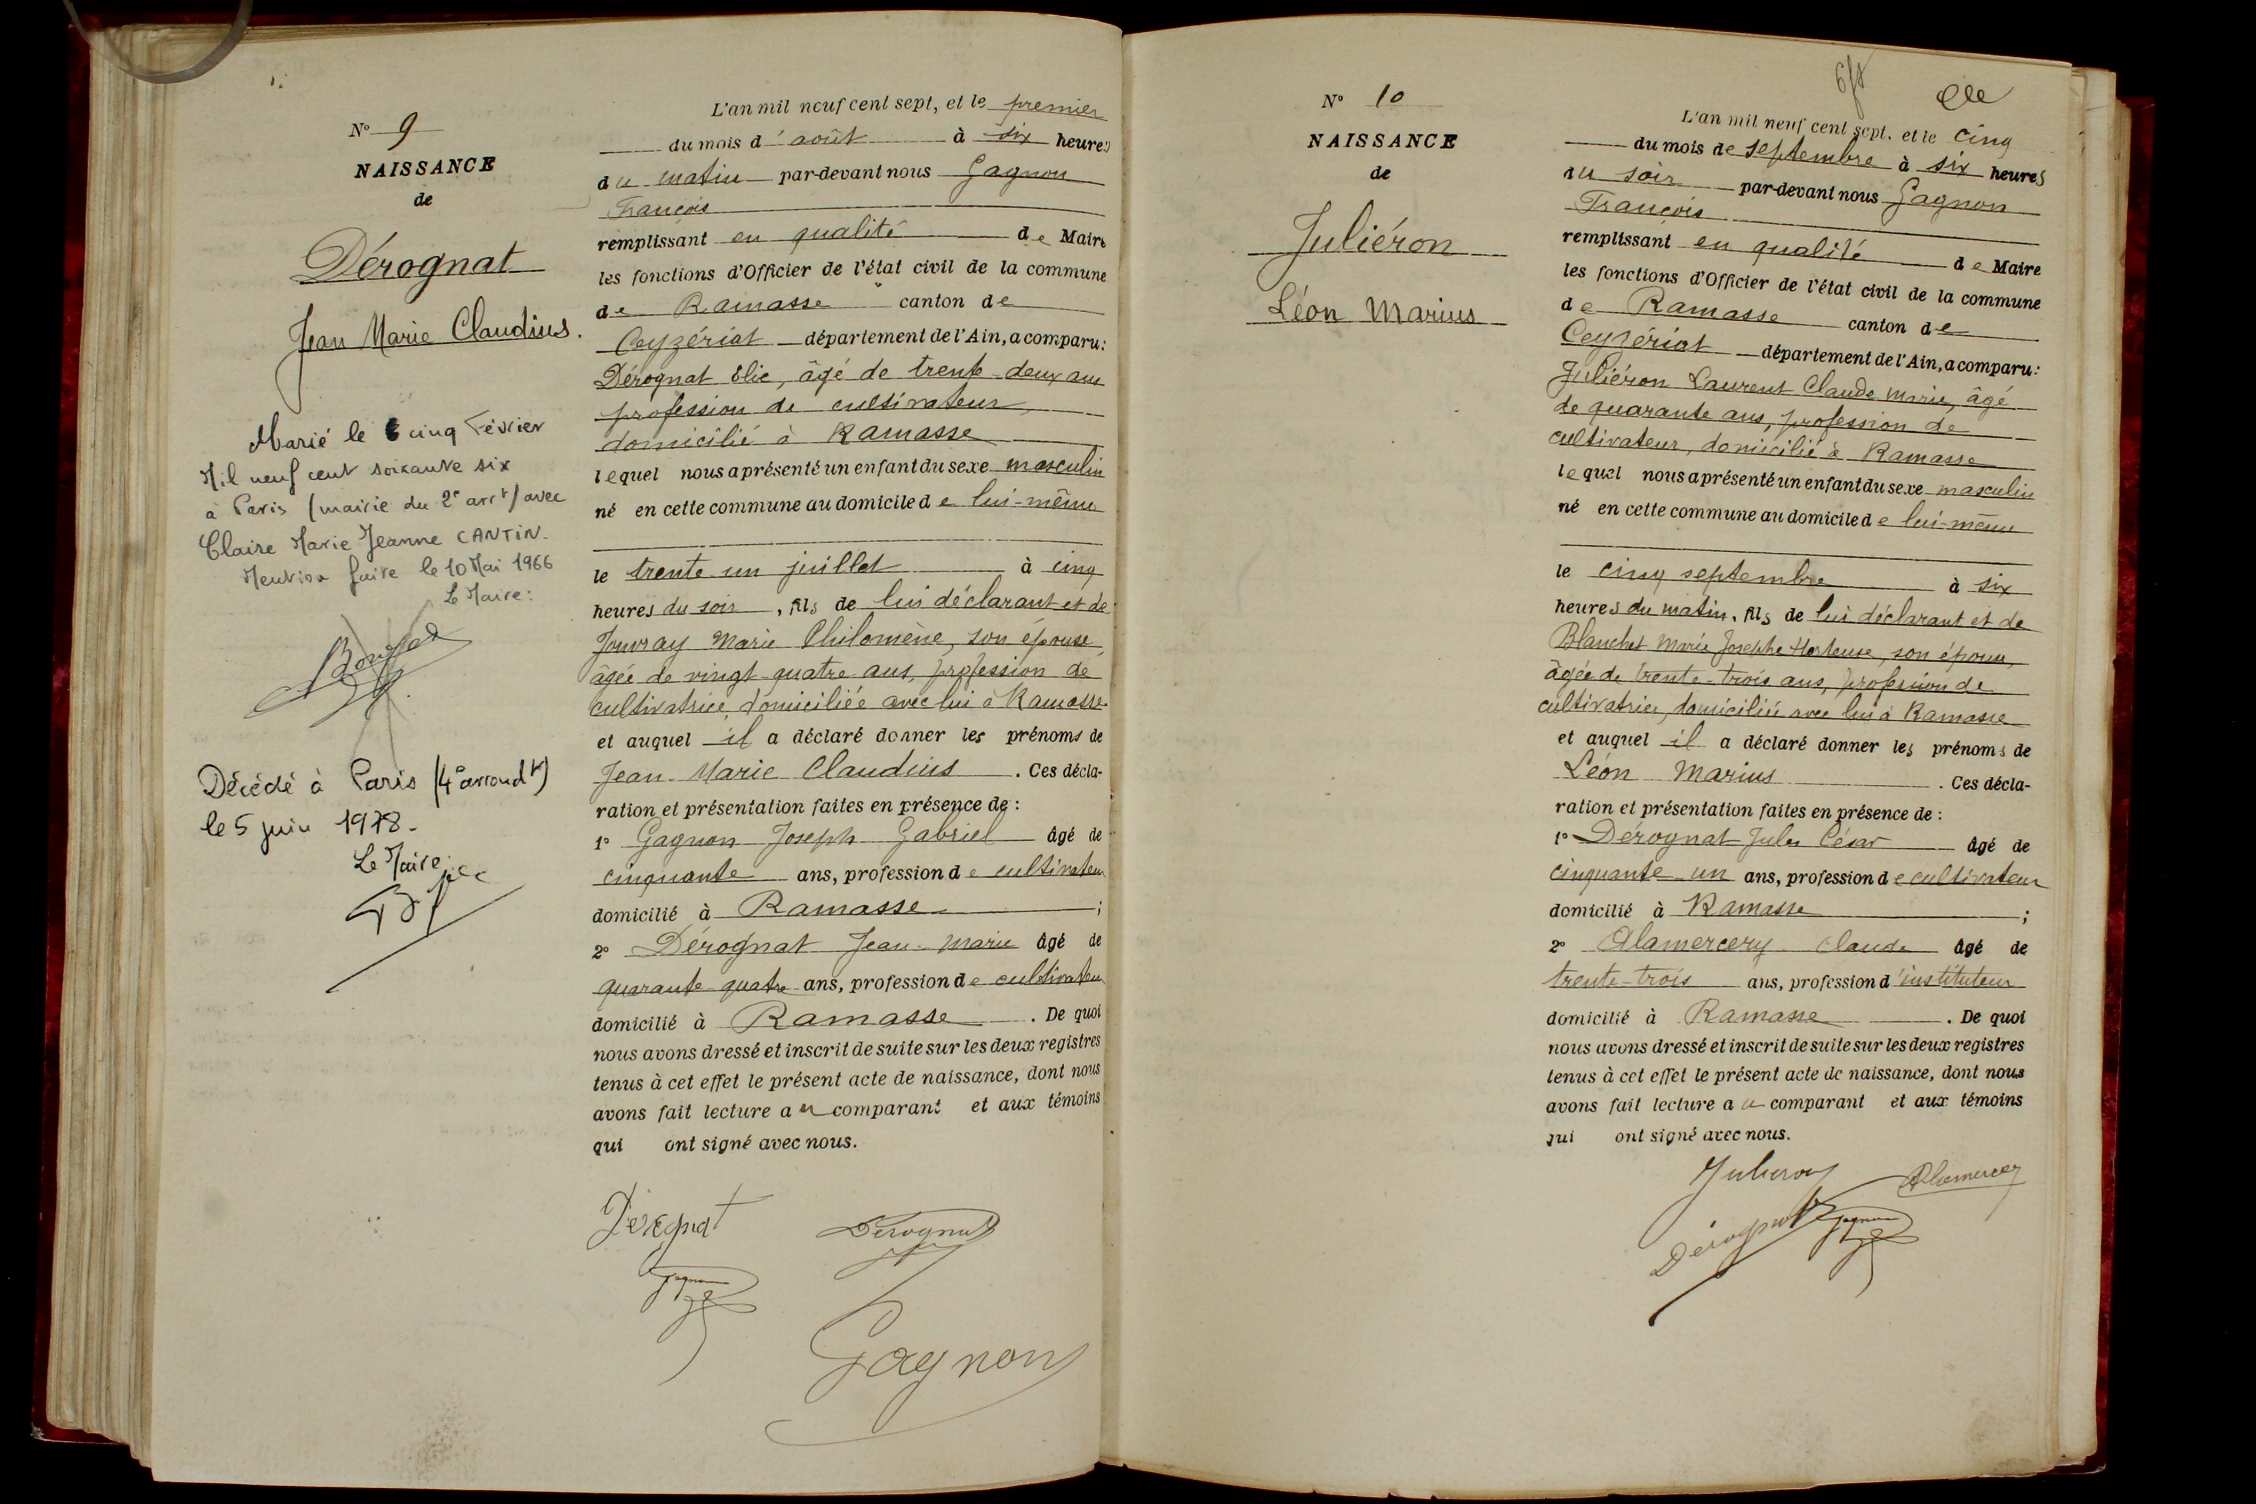 N° 9
NAISSANCE
de
Dérognat
Jean Marie Claudius.
Marié le cinq Février
Mil neuf cent soixante six
à Paris (mairie du 2e arrt) avec
Claire Marie Jeanne CANTIN.
Mention faite le 10 Mai 1966
Le Maire:
Décédé à Paris (4e arrondt)
le 5 juin 1978.
Le Maire:
L'an mil neuf cent sept, et le premier
du mois d'août à six heures
du matin par-devant nous Gagnon
François
remplissant en qualité de Maire
les fonctions d'Officier de l'état civil de la commune
de Ramasse canton de
Ceyzériat département de l'Ain, a comparu:
Dérognat Elie, âgé de trente-deux ans
profession de cultivateur,
domicilié à Ramasse
lequel nous a présenté un enfant du sexe masculin
né en cette commune au domicile de lui-même
le trente un juillet à cinq
heures du soir, fils de lui déclarant et de
Jouvray Marie Philomène, son épouse
âgée de vingt-quatre ans, profession de
cultivatrice, domiciliée avec lui à Ramasse
et auquel il a déclaré donner les prénoms de
Jean Marie Claudius. Ces décla-
ration et présentation faites en présence de:
1° Gagnon Joseph Gabriel âgé de
cinquante ans, profession de cultivateur
domicilié à Ramasse;
2° Dérognat Jean-Marie âgé de
quarante-quatre ans, profession de cultivateur
domicilié à Ramasse. De quoi
nous avons dressé et inscrit de suite sur les deux registres
tenus à cet effet le présent acte de naissance, dont nous
avons fait lecture au comparant et aux témoins
qui ont signé avec nous.
Dérognat Dérognat
Gagnon
Gagnon
N° 10
NAISSANCE
de
Juliéron
Léon Marius
L'an mil neuf cent sept, et le cinq
du mois de septembre à six heures
du soir par-devant nous Gagnon
François
remplissant en qualité de Maire
les fonctions d'Officier de l'état civil de la commune
de Ramasse canton de
Ceyzériat département de l'Ain, a comparu:
Juliéron Laurent Claude Marie, âgé
de quarante ans, profession de
cultivateur, domicilié à Ramasse
lequel nous a présenté un enfant du sexe masculin
né en cette commune au domicile de lui-même
le cinq septembre à six
heures du matin, fils de lui déclarant et de
Blanchet Marie Josephe Hortense, son épouse,
âgée de trente-trois ans, profession de
cultivatrice, domiciliée avec lui à Ramasse
et auquel il a déclaré donner les prénoms de
Léon Marius. Ces décla-
ration et présentation faites en présence de:
1° Dérognat Jules César âgé de
cinquante-un ans, profession de cultivateur
domicilié à Ramasse;
2° Alamercery Claude âgé de
trente-trois ans, profession d'instituteur
domicilié à Ramasse. De quoi
nous avons dressé et inscrit de suite sur les deux registres
tenus à cet effet le présent acte de naissance, dont nous
avons fait lecture au comparant et aux témoins
qui ont signé avec nous.
Juliéron Alamercery
Dérognat Gagnon